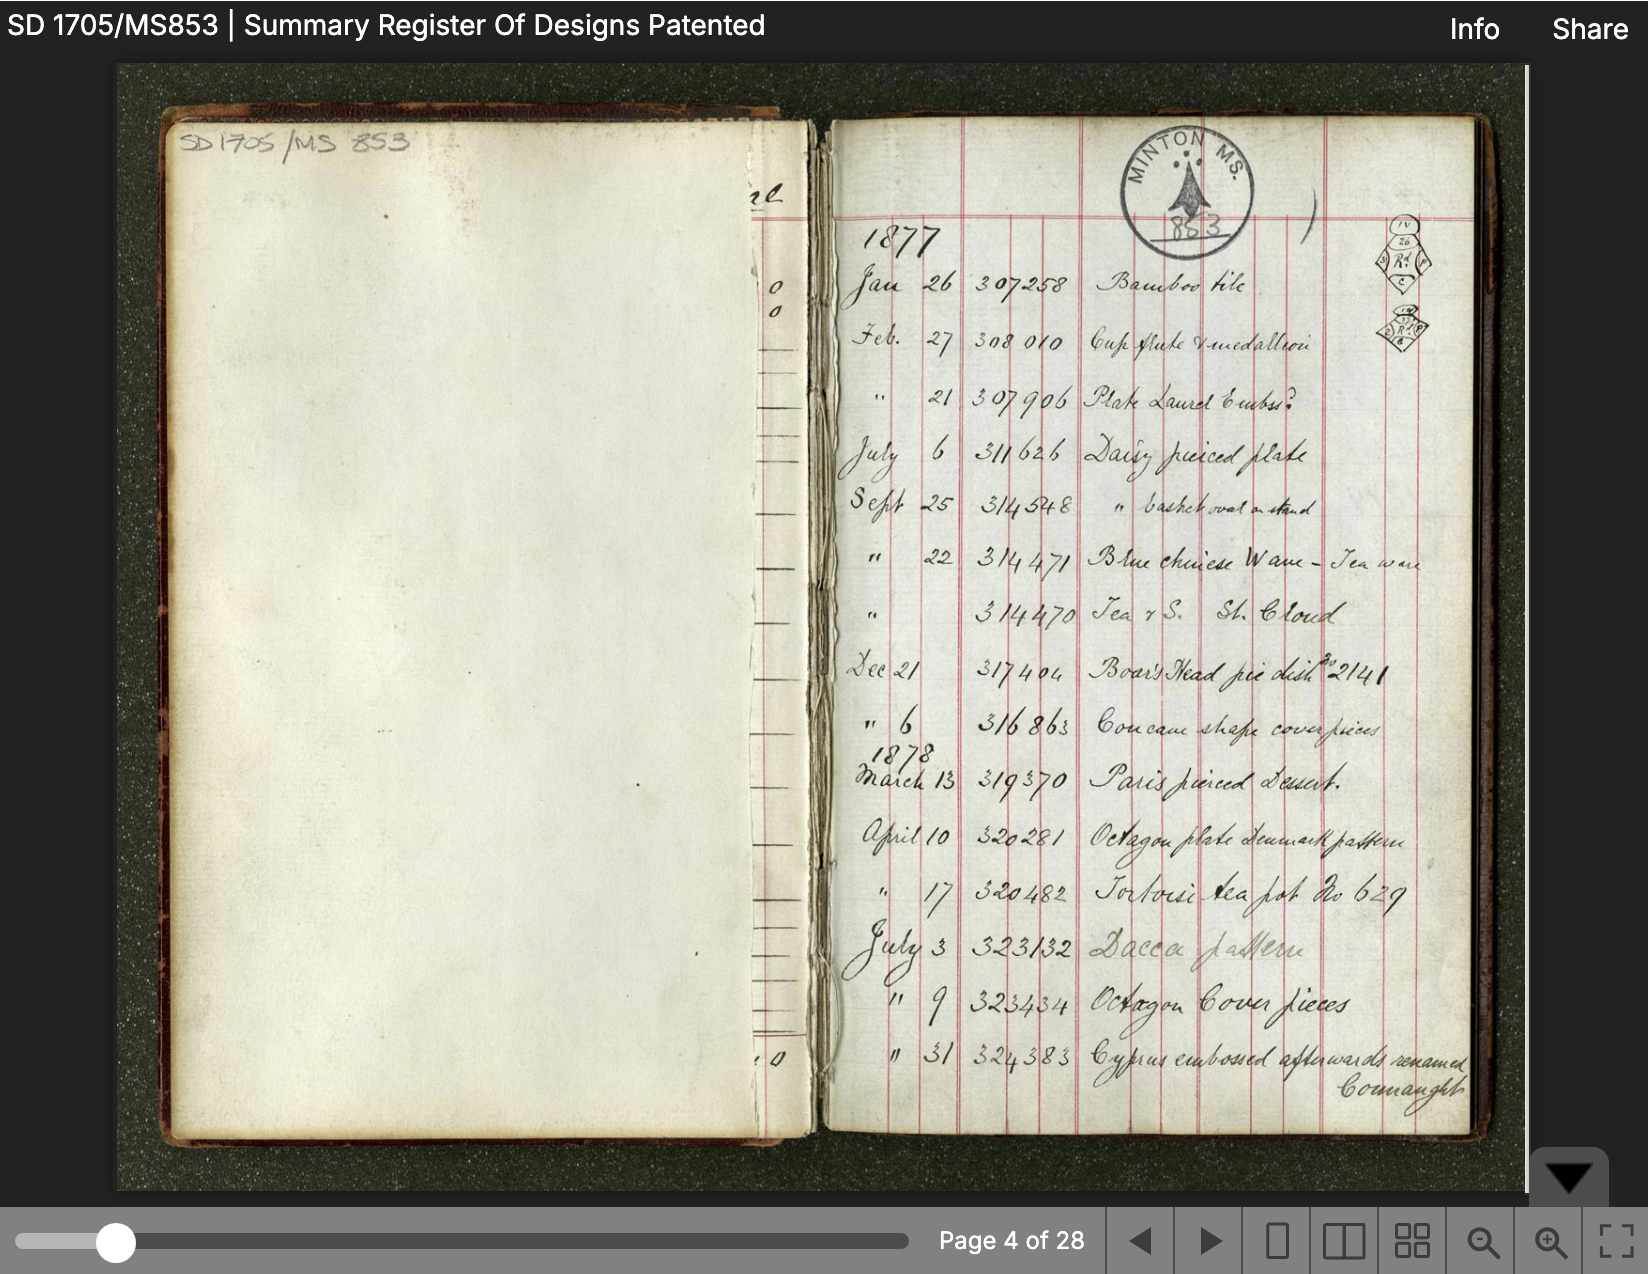 SD 1705/MS853 | Summary Register Of Designs Patented
Info Share
SD 1705/MS 853
MINTON MS.
853
1877
Jan 26 307258 Bamboo tile
Feb. 27 308010 Cup flute & medallion
" 21 307906 Plate Laurel Embss?
July 6 311626 Daisy pierced plate
Sept 25 314548 " basket oval on stand
" 22 314471 Blue Chinese Wave - Tea ware
" 314470 Tea & S. St. Cloud
Dec 21 317404 Boar's Head pie dish No 2141
" 6 316863 Concave shape cover pieces
1878
March 13 319370 Paris pierced Dessert.
April 10 320281 Octagon plate Denmark pattern
" 17 320482 Tortoise tea pot No 629
July 3 323132 Dacca pattern
" 9 323434 Octagon Cover pieces
" 31 324383 Cyprus embossed afterwards renamed
Connaught
IV
26
Rd
C
Rd
Page 4 of 28